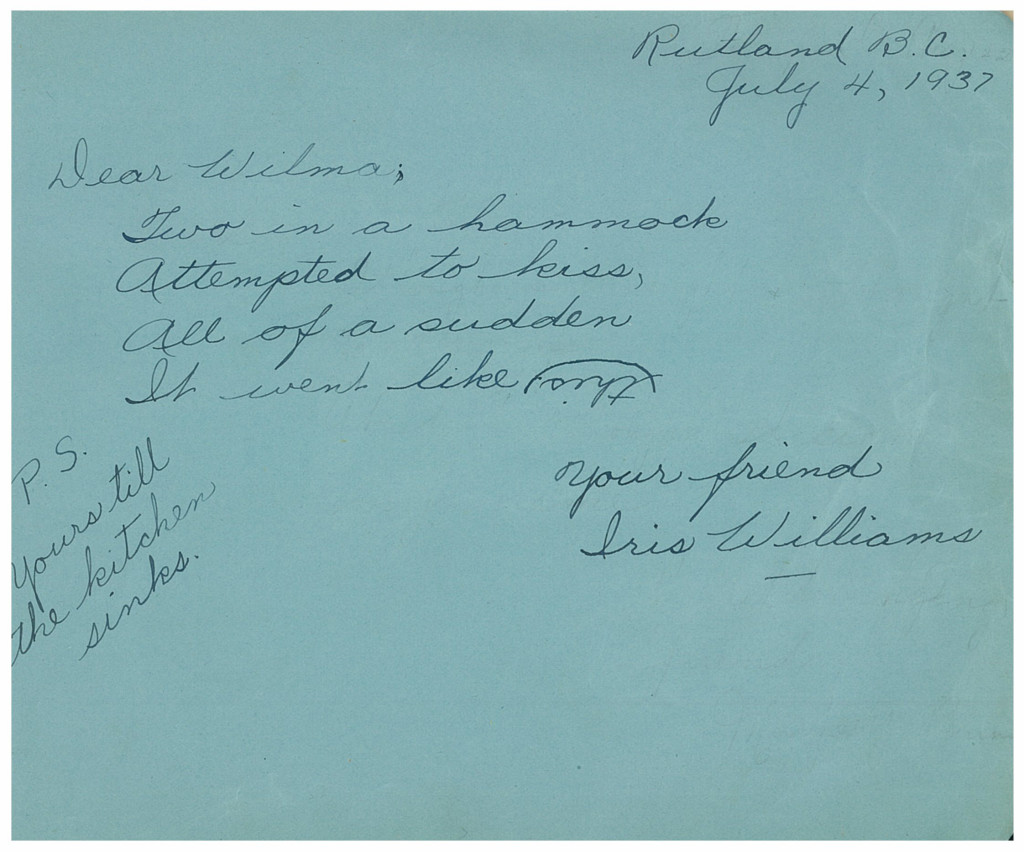 Rutland B.C.
July 4, 1937
Dear Wilma;
Two in a hammock
Attempted to kiss,
All of a sudden
It went like this
Your friend
Iris Williams
P.S.
Yours till
the kitchen
sinks.